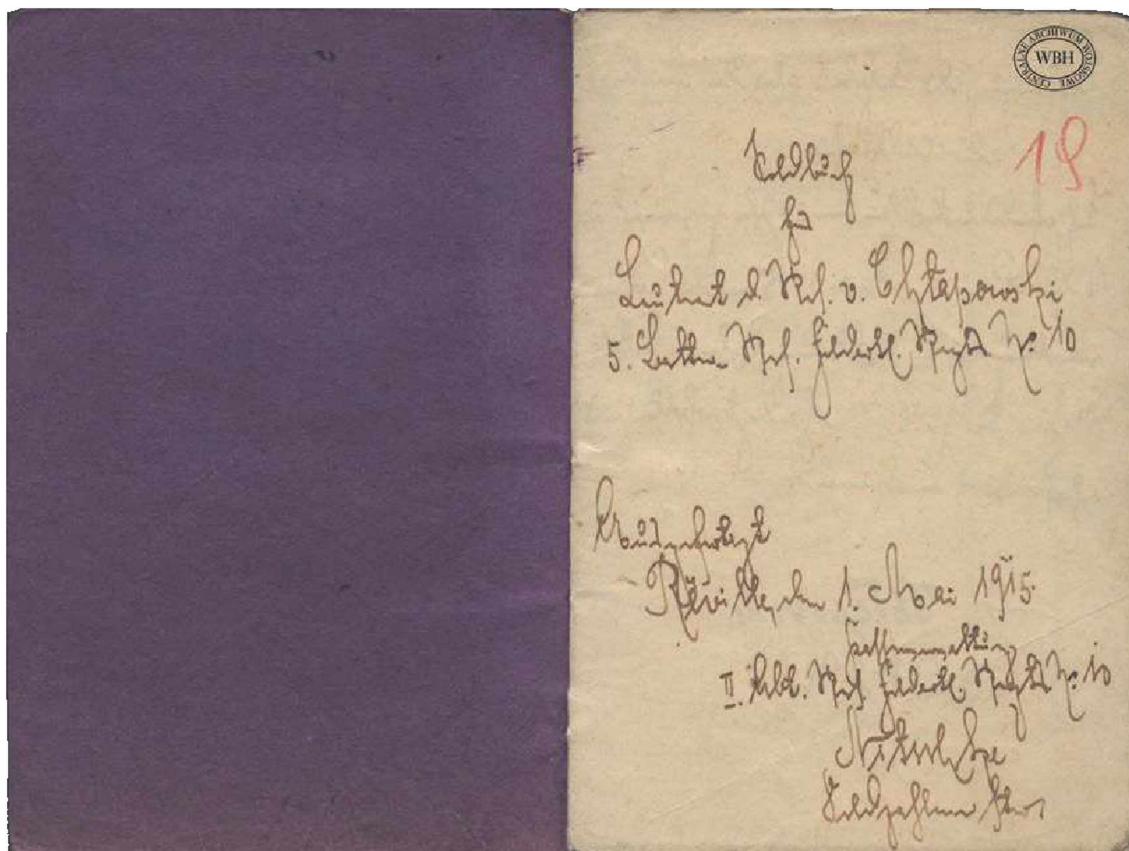 CENTRALNE ARCHIWUM WOJSKOWE
WBH
19
Soldbuch
für
Leutnant d. Res. v. Chłapowski
5. Battr. Res. Feldartl. Regts. No. 10
Ausgefertigt
Réville, den 1. Mai 1915.
Kassenverwaltung
II. Abt. Res. Feldartl. Regts. No. 10
Nitschke